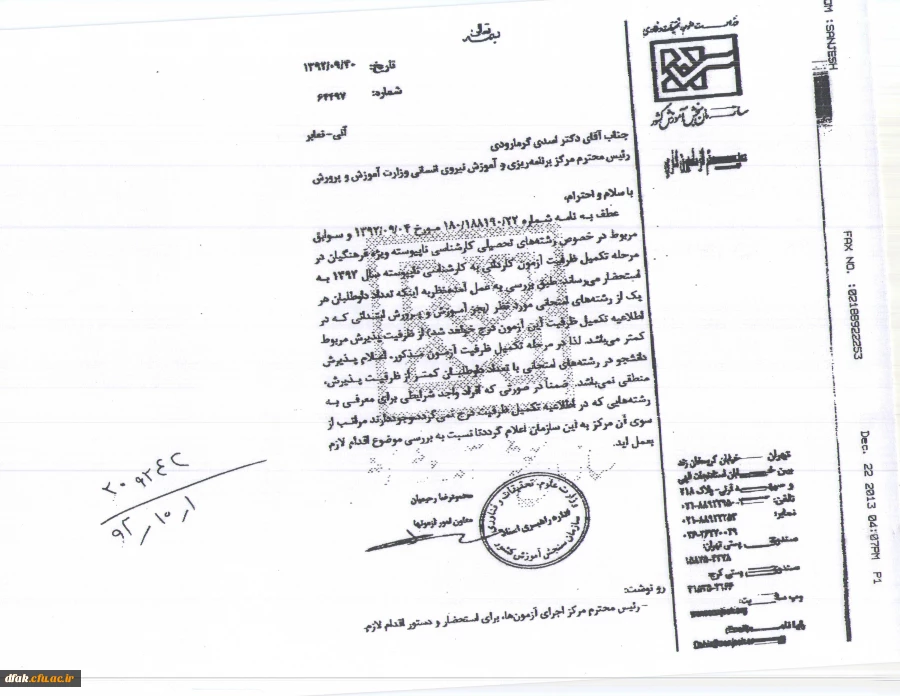 بسمه تعالی
سازمان سنجش آموزش کشور
تاریخ: ۱۳۹۲/۰۹/۳۰
شماره: ۶۴۴۹۷
آنی-نمابر
جناب آقای دکتر اسدی گرمارودی
رئیس محترم مرکز برنامه‌ریزی و آموزش نیروی انسانی وزارت آموزش و پرورش
با سلام و احترام،
عطف به نامه شماره ۱۸۰/۱۸۸۱۹۰/۲۲ مورخ ۱۳۹۲/۰۹/۰۴ و سوابق
مربوط در خصوص رشته‌های تحصیلی کارشناسی ناپیوسته ویژه فرهنگیان در
مرحله تکمیل ظرفیت آزمون کاردانی به کارشناسی ناپیوسته سال ۱۳۹۲ به
استحضار می‌رساند، طبق بررسی به عمل آمده نظر به اینکه تعداد داوطلبان هر
یک از رشته‌های امتحانی مورد نظر (بجز آموزش و پرورش ابتدائی که در
اطلاعیه تکمیل ظرفیت این آزمون درج خواهد شد) از ظرفیت پذیرش مربوط
کمتر می‌باشد. لذا در مرحله تکمیل ظرفیت آزمون مذکور، اعلام پذیرش
دانشجو در رشته‌های امتحانی با تعداد داوطلبان کمتر از ظرفیت پذیرش،
منطقی نمی‌باشد. ضمناً در صورتی که افراد واجد شرایطی برای معرفی به
رشته‌هایی که در اطلاعیه تکمیل ظرفیت درج نمی‌گردد وجود دارند مراتب از
سوی آن مرکز به این سازمان اعلام گردد تا نسبت به بررسی موضوع اقدام لازم
بعمل آید.
محمودرضا رحیمیان
معاون امور آزمونها
وزارت علوم، تحقیقات و فناوری
سازمان سنجش آموزش کشور
رو نوشت:
- رئیس محترم مرکز اجرای آزمون‌ها، برای استحضار و دستور اقدام لازم.
۹۲/۱۰/۱
تهران
خیابان کریمخان زند
تلفن:
نمابر:
صندوق پستی تهران:
صندوق پستی کرج:
OM :SANJESH
FAX NO. :02188922253
Dec. 22 2013 04:07PM P1
dfak.cfu.ac.ir